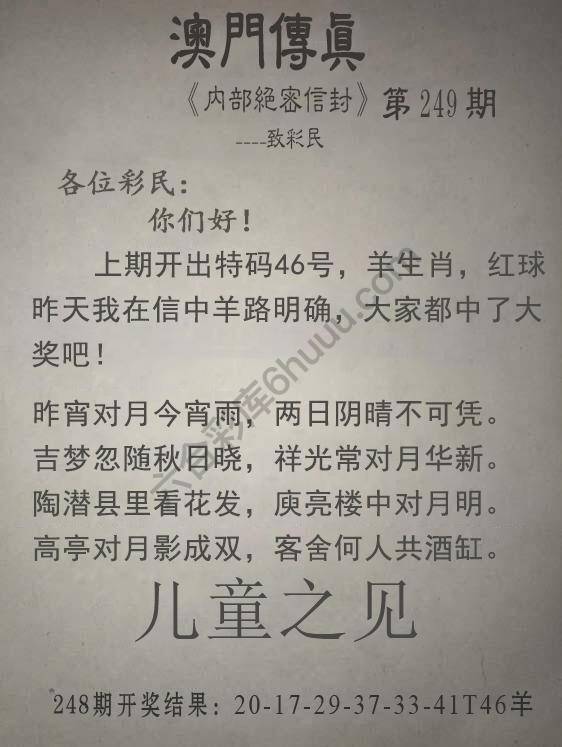 澳門傳真
《内部絕密信封》第249期
----致彩民
各位彩民：
你们好！
上期开出特码46号，羊生肖，红球
昨天我在信中羊路明确，大家都中了大
奖吧！
昨宵对月今宵雨，两日阴晴不可凭。
吉梦忽随秋日晓，祥光常对月华新。
陶潜县里看花发，庾亮楼中对月明。
高亭对月影成双，客舍何人共酒缸。
儿童之见
248期开奖结果：20-17-29-37-33-41T46羊
六合彩库6huuu.com